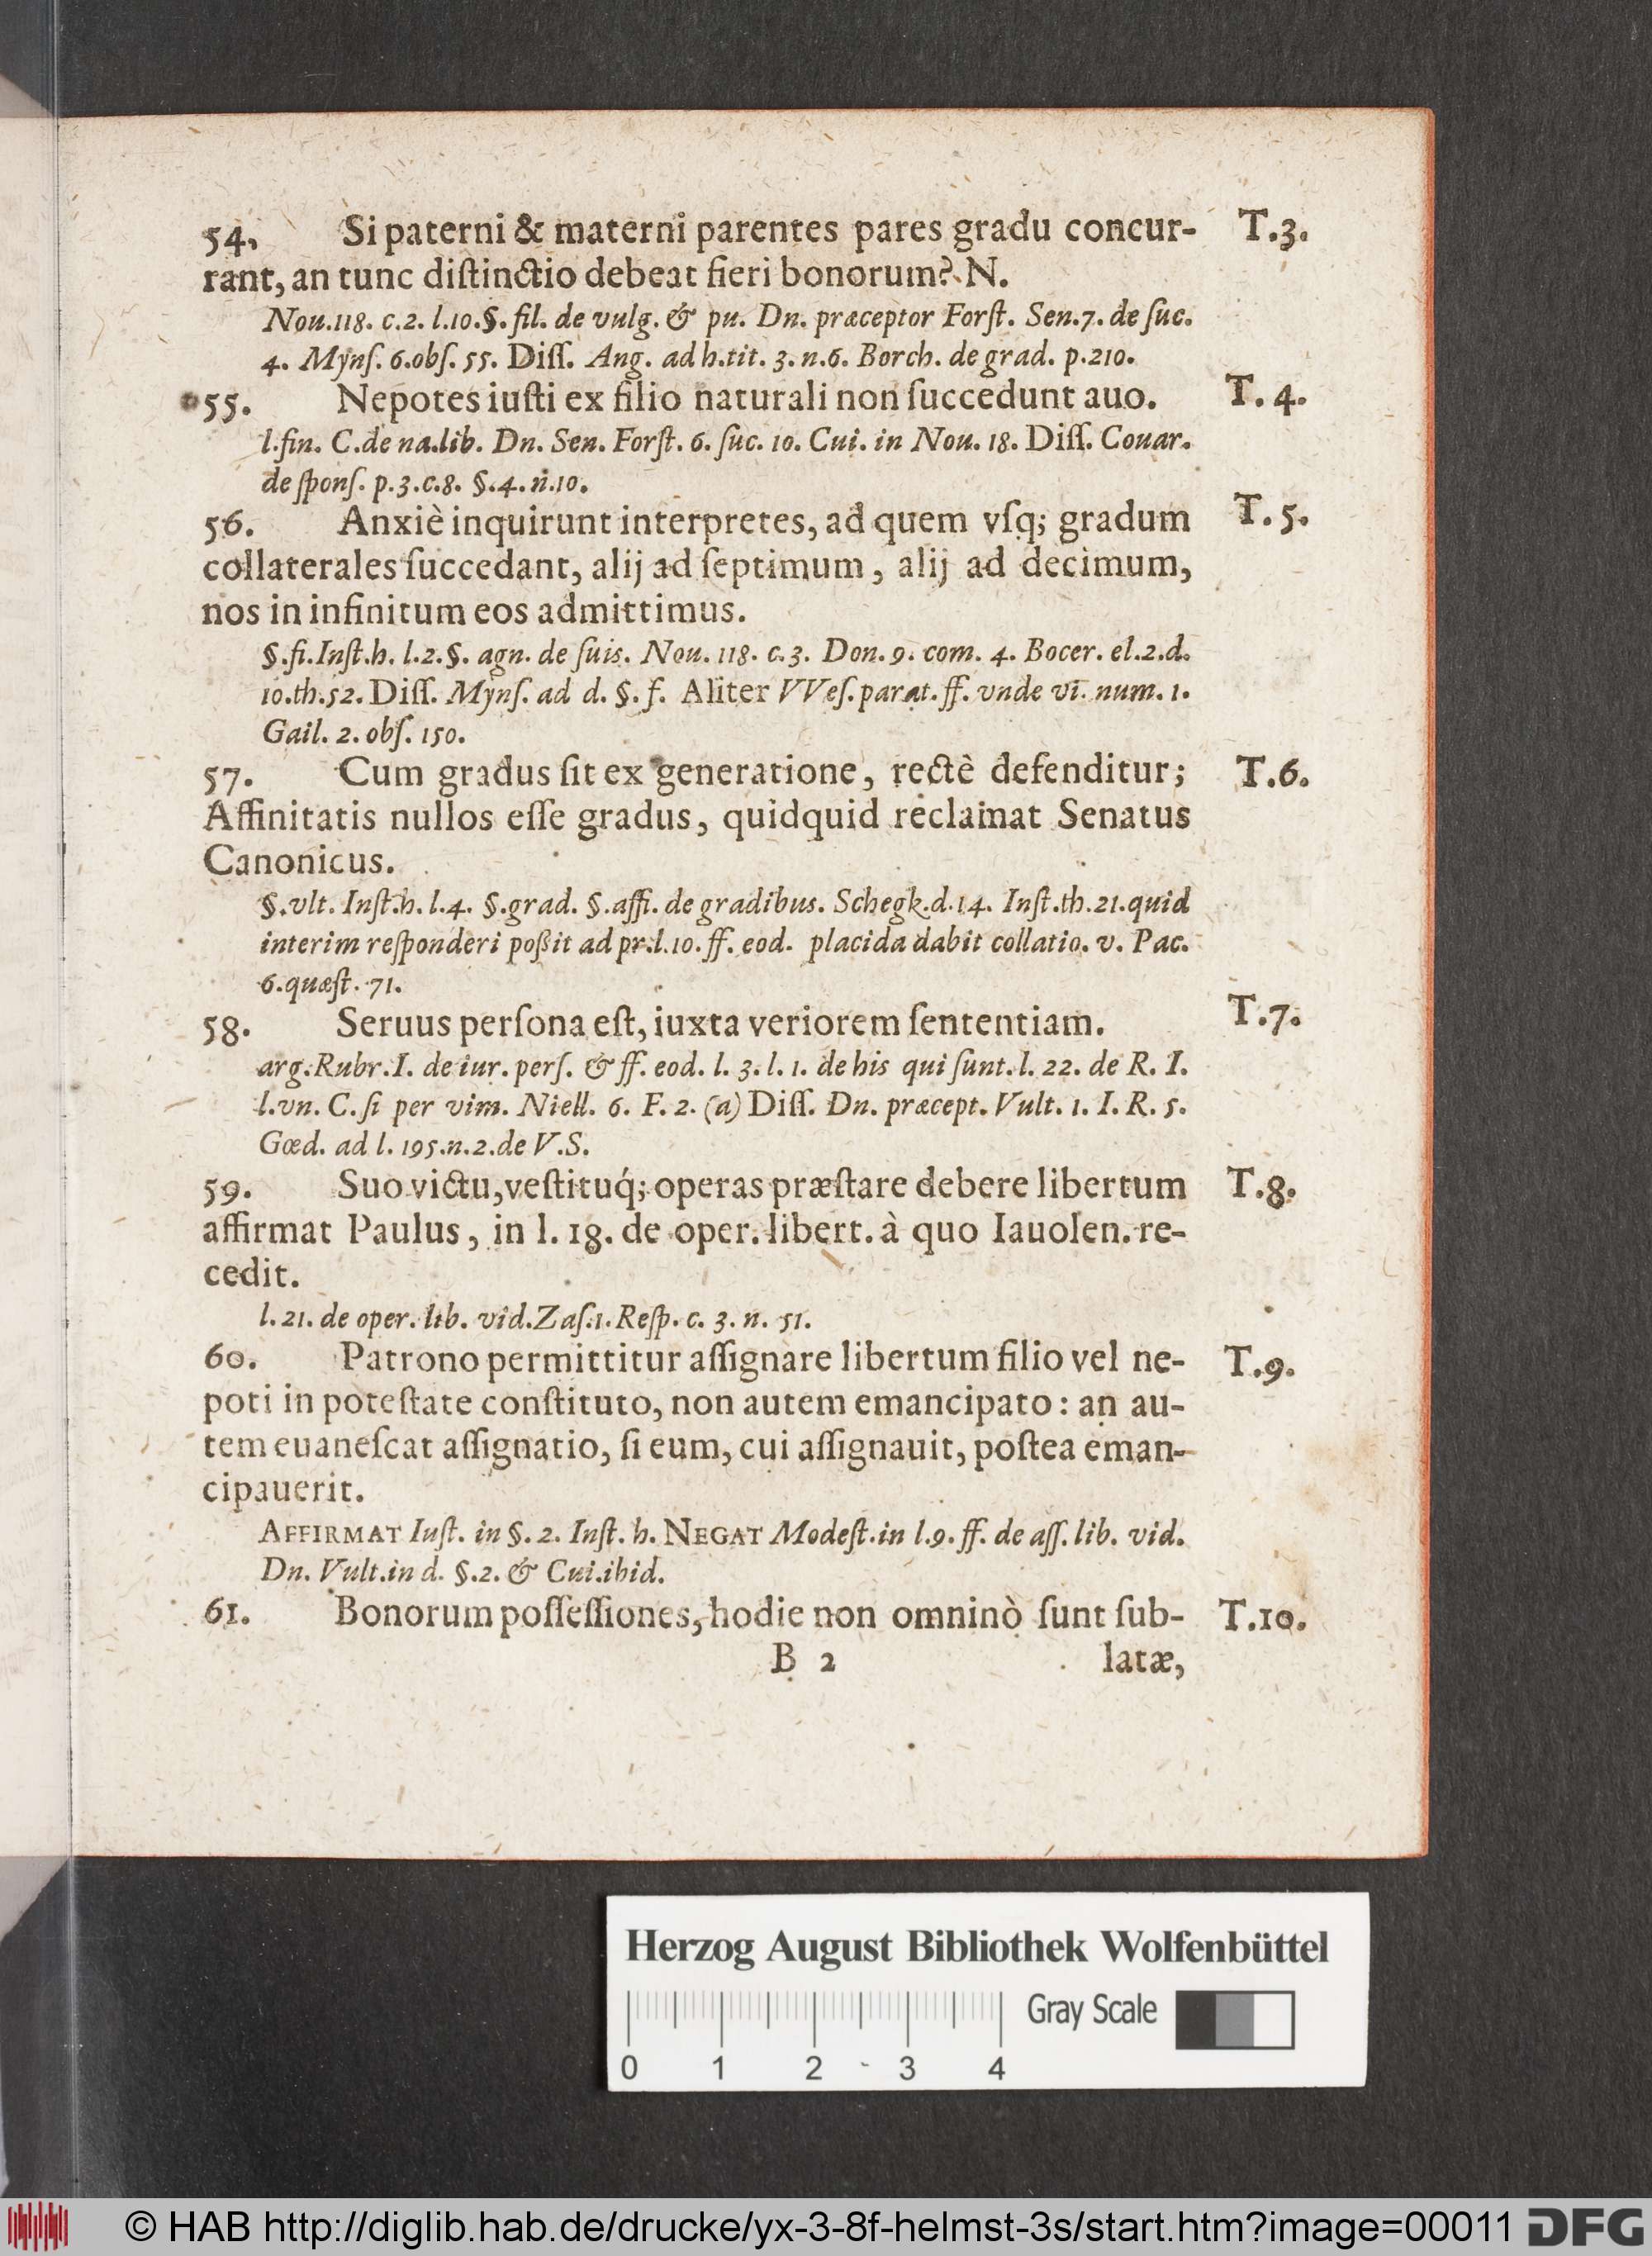 54. Si paterni & materni parentes pares gradu concur- T.3.
rant, an tunc diſtinctio debeat fieri bonorum? N.
Nou.118. c.2. l.10.§. fil. de vulg. & pu. Dn. præceptor Forſt. Sen.7. de ſuc.
4. Mynſ. 6.obſ. 55. Diſſ. Ang. ad h.tit. 3. n.6. Borch. de grad. p.210.
55. Nepotes iuſti ex filio naturali non ſuccedunt auo. T. 4.
l.fin. C.de na.lib. Dn. Sen. Forſt. 6. ſuc. 10. Cui. in Nou. 18. Diſſ. Couar.
de ſponſ. p.3.c.8. §.4.n.10.
56. Anxiè inquirunt interpretes, ad quem vſq; gradum T. 5.
collaterales ſuccedant, alij ad ſeptimum, alij ad decimum,
nos in infinitum eos admittimus.
§.fi.Inſt.h. l.2.§. agn. de ſuis. Nou. 118. c.3. Don. 9. com. 4. Bocer. el.2.d.
10.th.52. Diſſ. Mynſ. ad d. §. f. Aliter VVeſ.parat.ff. vnde vi. num. 1.
Gail. 2. obſ. 150.
57. Cum gradus ſit ex generatione, rectè defenditur; T.6.
Affinitatis nullos eſſe gradus, quidquid reclamat Senatus
Canonicus.
§.vlt. Inſt.h. l.4. §.grad. §.affi. de gradibus. Schegk.d.14. Inſt.th.21.quid
interim reſponderi poßit ad pr.l.10.ff. eod. placida dabit collatio. v. Pac.
6.quæſt. 71.
58. Seruus perſona eſt, iuxta veriorem ſententiam. T.7.
arg.Rubr.I. de iur. perſ. & ff. eod. l. 3. l. 1. de his qui ſunt. l. 22. de R. I.
l.vn. C. ſi per vim. Niell. 6. F. 2. (a) Diſſ. Dn. præcept. Vult. 1. I. R. 5.
Gœd. ad l. 195.n.2.de V.S.
59. Suo victu, veſtituq́; operas præſtare debere libertum T.8.
affirmat Paulus, in l. 18. de oper. libert. à quo Iauolen. re-
cedit.
l.21. de oper. lib. vid.Zaſ.1.Reſp. c. 3. n. 51.
60. Patrono permittitur aſſignare libertum filio vel ne- T.9.
poti in poteſtate conſtituto, non autem emancipato: an au-
tem euaneſcat aſſignatio, ſi eum, cui aſſignauit, poſtea eman-
cipauerit.
AFFIRMAT Iuſt. in §. 2. Inſt. h. NEGAT Modeſt.in l.9. ff. de aſſ. lib. vid.
Dn. Vult.in d. §.2. & Cui.ibid.
61. Bonorum poſſeſſiones, hodie non omninò ſunt ſub- T.10.
B 2 latæ,
Herzog August Bibliothek Wolfenbüttel
Gray Scale
0 1 2 3 4
© HAB http://diglib.hab.de/drucke/yx-3-8f-helmst-3s/start.htm?image=00011 DFG